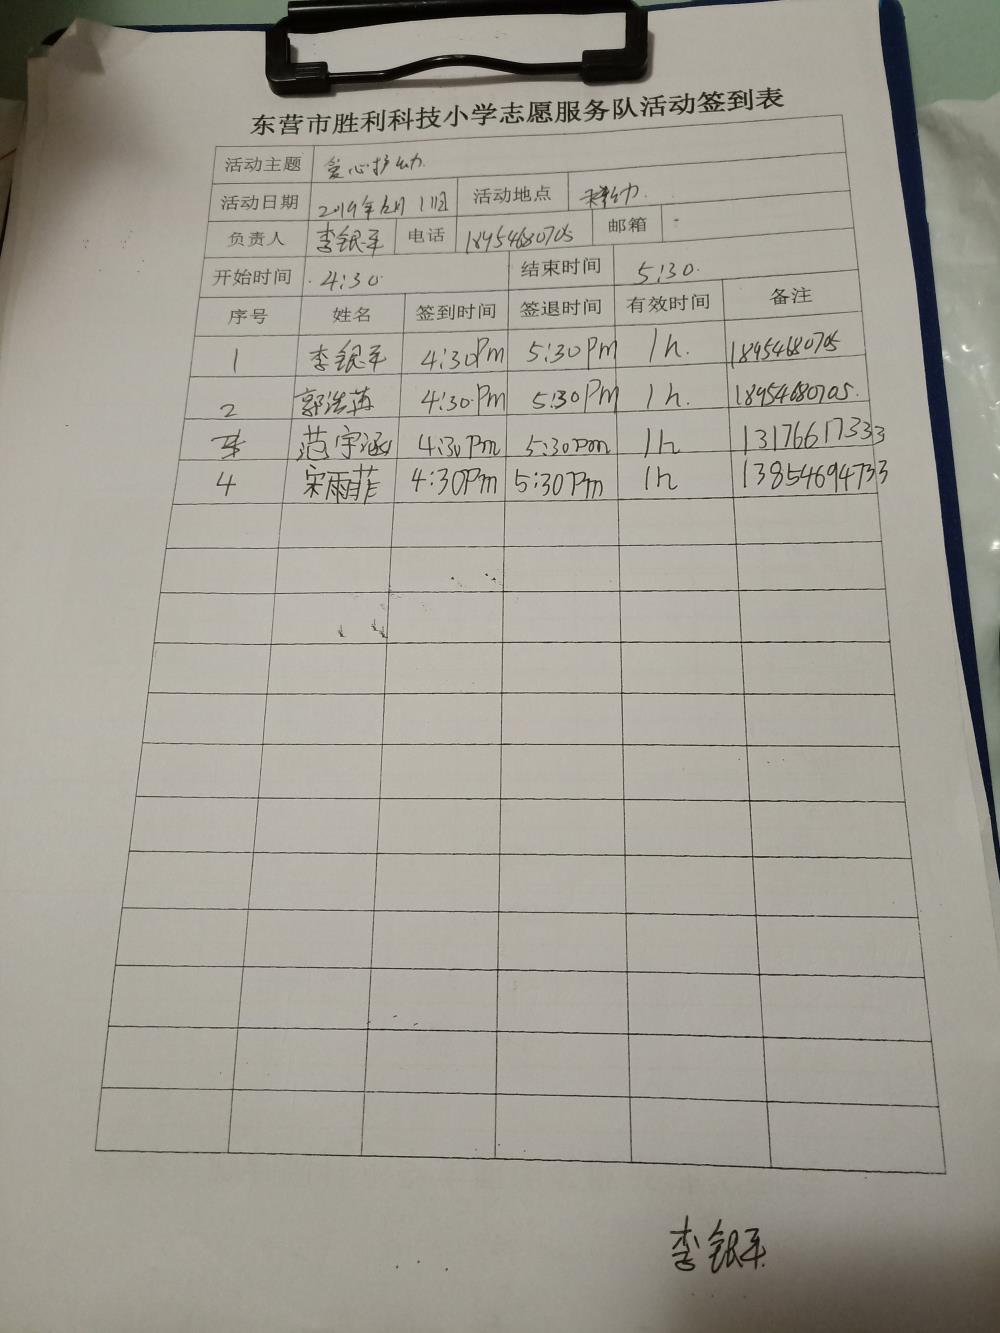 东营市胜利科技小学志愿服务队活动签到表
活动主题 爱心护幼
活动日期 2019年 月11日 活动地点
负责人 李银平 电话 18954680705 邮箱
开始时间 4:30 结束时间 5:30
序号 姓名 签到时间 签退时间 有效时间 备注
1 李银平 4:30Pm 5:30Pm 1h. 18954680705
2 郭浩苒 4:30Pm 5:30Pm 1h. 18954680705.
范宇涵 4:30Pm 5:30Pm 1h 13176617333
4 宋雨菲 4:30Pm 5:30Pm 1h 13854694733
李银平